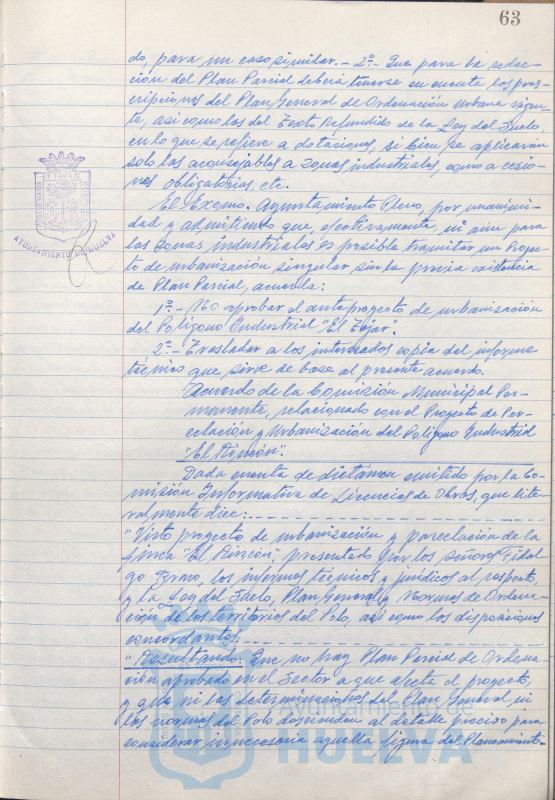 63
do, para un caso similar.- 2º.- Que para la redac-
ción del Plan Parcial deberá tenerse en cuenta las pres-
cripciones del Plan General de Ordenación Urbana vigen-
te, asi como las del Texto Refundido de la Ley del Suelo,
en lo que se refiere a dotaciones, si bien se aplicarán
solo las aconsejables a zonas industriales, como a cesio-
nes obligatorias, etc.
El Excmo. Ayuntamiento Pleno, por unanimi-
dad y admitiendo que, efectivamente, ni aun para
las zonas industriales es posible tramitar un Proyec-
to de urbanización singular sin la previa existencia
de Plan Parcial, acuerda:
1º.- No aprobar el anteproyecto de urbanización
del Poligono Industrial "El Tejar".
2º.- Trasladar a los interesados copia del informe
técnico que sirve de base al presente acuerdo.
Acuerdo de la Comisión Municipal Per-
manente, relacionado con el Proyecto de Par-
celación y Urbanización del Poligono Industrial
"El Rincón".
Dada cuenta de dictamen emitido por la Co-
misión Informativa de Licencias de Obras, que lite-
ralmente dice:
"Visto proyecto de urbanización y parcelación de la
finca "El Rincón", presentado por los señores Fidal
go Bravo, los informes técnicos y jurídicos al respecto,
y la Ley del Suelo, Plan General y Normas de Ordena-
ción de los territorios del Polo, asi como las disposiciones
concordantes;
"Resultando: Que no hay Plan Parcial de Ordena-
ción aprobado en el Sector a que afecta el proyecto,
y que ni las determinaciones del Plan General ni
las normas del Polo descienden al detalle preciso para
considerar innecesaria aquella figura del Planeamiento.
AYUNTAMIENTO DE HUELVA
Ayuntamiento de
HUELVA